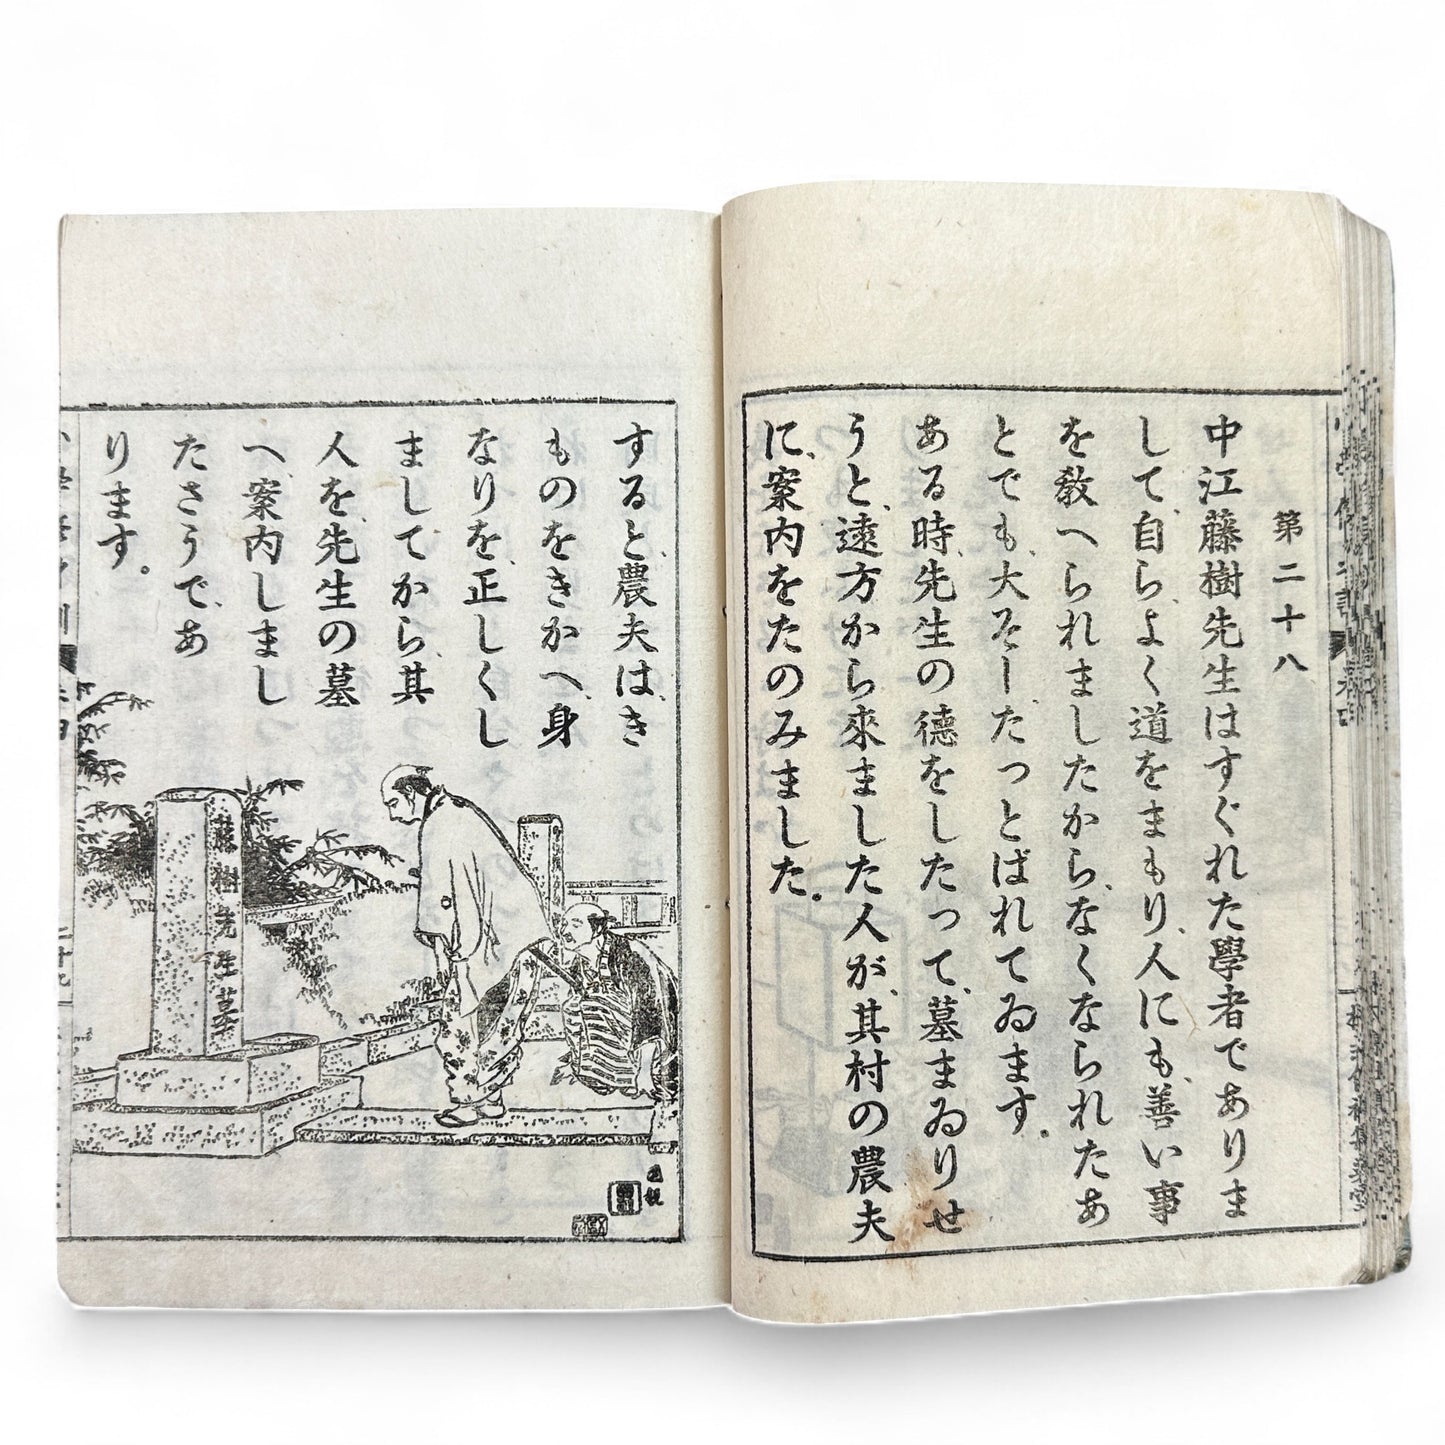 第二十八
中江藤樹先生はすぐれた學者でありま
して、自らよく道をまもり、人にも、善い事
を敎へられましたから、なくなられたあ
とでも、大そーだつとばれてゐます。
ある時、先生の德をしたつて、墓まゐりせ
うと、遠方から來ました人が、其村の農夫
に、案内をたのみました。
すると、農夫は、き
ものをきかへ、身
なりを、正しくし
ましてから、其
人を、先生の墓
へ、案内しまし
たさうであ
ります。
藤樹先生墓